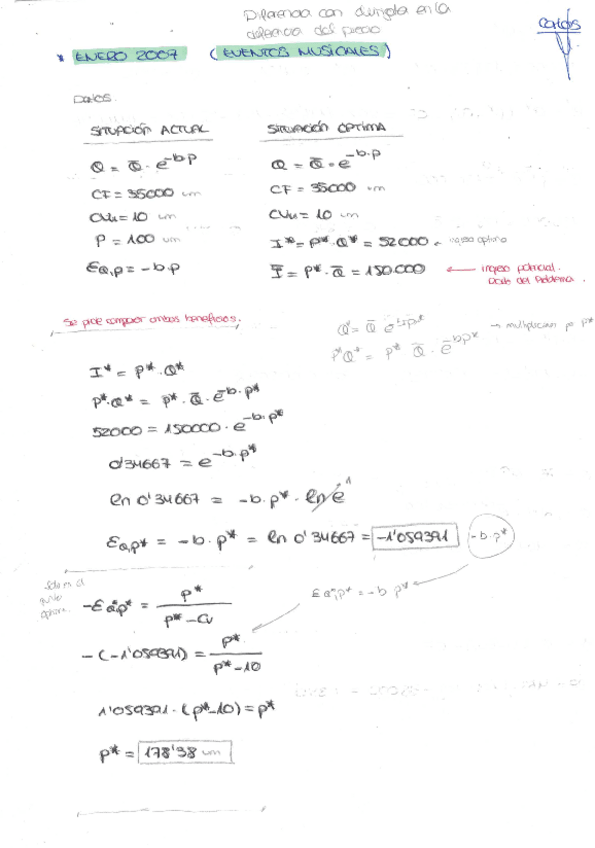 Diferencia con dirigida en la
diferencia del precio
Carlos
* ENERO 2007 (EVENTOS MUSICALES)
DATOS.
SITUACIÓN ACTUAL
Q = Q̄ · e^-b·p
CF = 35000 um
CVu = 10 um
P = 100 um
ε_Q,p = -b·p
SITUACIÓN OPTIMA
Q = Q̄ · e^-b·p
CF = 35000 um
CVu = 10 um
I* = P* · Q* = 52000 ingreso optimo
Ī = P* · Q̄ = 150.000 ← ingreso potencial.
Dato del Problema.
Se pide comparar ambos beneficios.
Q* = Q̄ e^-b·p* → multiplican por p*
P*Q* = P* Q̄ · e^-bp*
I* = P* · Q*
P* · Q* = P* · Q̄ · e^-b·p*
52000 = 150000 · e^-b·p*
0'34667 = e^-b·p*
ln 0'34667 = -b·p* · ln e 1
ε_Q,p* = -b·p* = ln 0'34667 = -1'059391 -b·p*
Solo en el
optimo.
-ε_Q*,p* = P* / P* - Cu
ε_Q*,p* = -b p*
-(-1'059391) = P* / P* - 10
1'059391 · (P* - 10) = P*
P* = 178'38 um